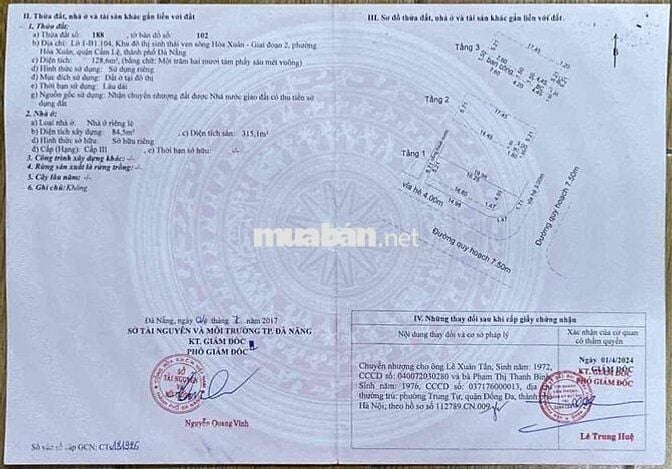 II. Thửa đất, nhà ở và tài sản khác gắn liền với đất
1. Thửa đất:
a) Thửa đất số: 188 , tờ bản đồ số: 102
b) Địa chỉ: Lô 1-B1.104, Khu đô thị sinh thái ven sông Hòa Xuân - Giai đoạn 2, phường
Hòa Xuân, quận Cẩm Lệ, thành phố Đà Nẵng
c) Diện tích: 128,6m², (bằng chữ: Một trăm hai mươi tám phẩy sáu mét vuông)
d) Hình thức sử dụng: Sử dụng riêng
đ) Mục đích sử dụng: Đất ở tại đô thị
e) Thời hạn sử dụng: Lâu dài
g) Nguồn gốc sử dụng: Nhận chuyển nhượng đất được Nhà nước giao đất có thu tiền sử
dụng đất
2. Nhà ở:
a) Loại nhà ở: Nhà ở riêng lẻ
b) Diện tích xây dựng: 84,5m² ; c) Diện tích sàn: 315,1m²
d) Hình thức sở hữu: Sở hữu riêng
đ) Cấp (Hạng): Cấp III ; e) Thời hạn sở hữu: -/-
3. Công trình xây dựng khác: -/-
4. Rừng sản xuất là rừng trồng: -/-
5. Cây lâu năm: -/-
6. Ghi chú: Không.
Đà Nẵng, ngày tháng năm 2017
SỞ TÀI NGUYÊN VÀ MÔI TRƯỜNG TP. ĐÀ NẴNG
KT. GIÁM ĐỐC
PHÓ GIÁM ĐỐC
SỞ
TÀI NGUYÊN
Nguyễn Quang Vinh
Số vào sổ cấp GCN:
III. Sơ đồ thửa đất, nhà ở và tài sản khác gắn liền với đất
B
Tầng 3
17.45
ban công
Tầng 2
17.45
Tầng 1
vỉa hè 4.00m
vỉa hè 3.00m
Đường quy hoạch 7.50m
Đường quy hoạch 7.50m
muaban.net
IV. Những thay đổi sau khi cấp giấy chứng nhận
Nội dung thay đổi và cơ sở pháp lý
Xác nhận của cơ quan
có thẩm quyền
Chuyển nhượng cho ông Lê Xuân Tấn, Sinh năm: 1972,
CCCD số: 040072030280 và bà Phạm Thị Thanh Bình
Sinh năm: 1976, CCCD số: 037176000013, địa chỉ
thường trú: phường Trung Tự, quận Đống Đa, thành phố
Hà Nội; theo hồ sơ số 112789.CN.009
Ngày 01/4/2024
KT. GIÁM ĐỐC
PHÓ GIÁM ĐỐC
Lê Trung Huệ